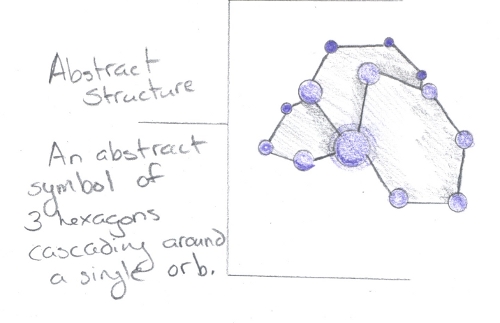 Abstract
Structure
An abstract
symbol of
3 hexagons
cascading around
a single orb.